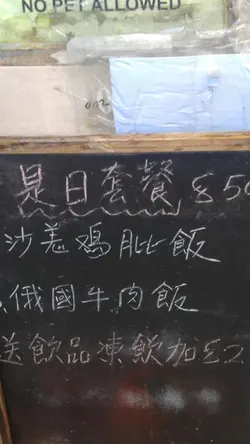 NO PET ALLOWED
是日套餐 $50
沙羗鸡肶飯
俄國牛肉飯
送飲品凍飲加$2